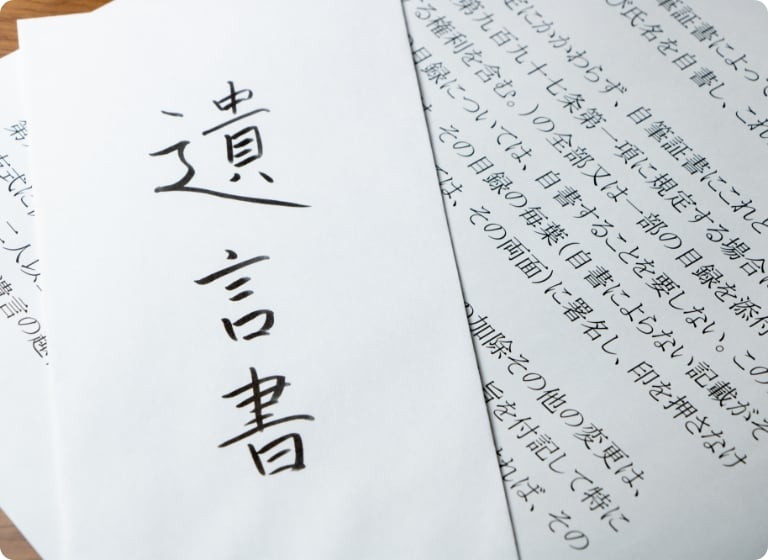 遺言書
筆証書によって
び氏名を自書し、これ
定にかかわらず、自筆証書にこれと
第九百九十七条第一項に規定する場合に
る権利を含む。)の全部又は一部の目録を添付
の目録については、自書することを要しない。この
、その目録の毎葉(自書によらない記載がそ
ては、その両面)に署名し、印を押さなけ
の加除その他の変更は、
旨を付記して特に
れば、その
第
方式に
二人以
遺言の趣